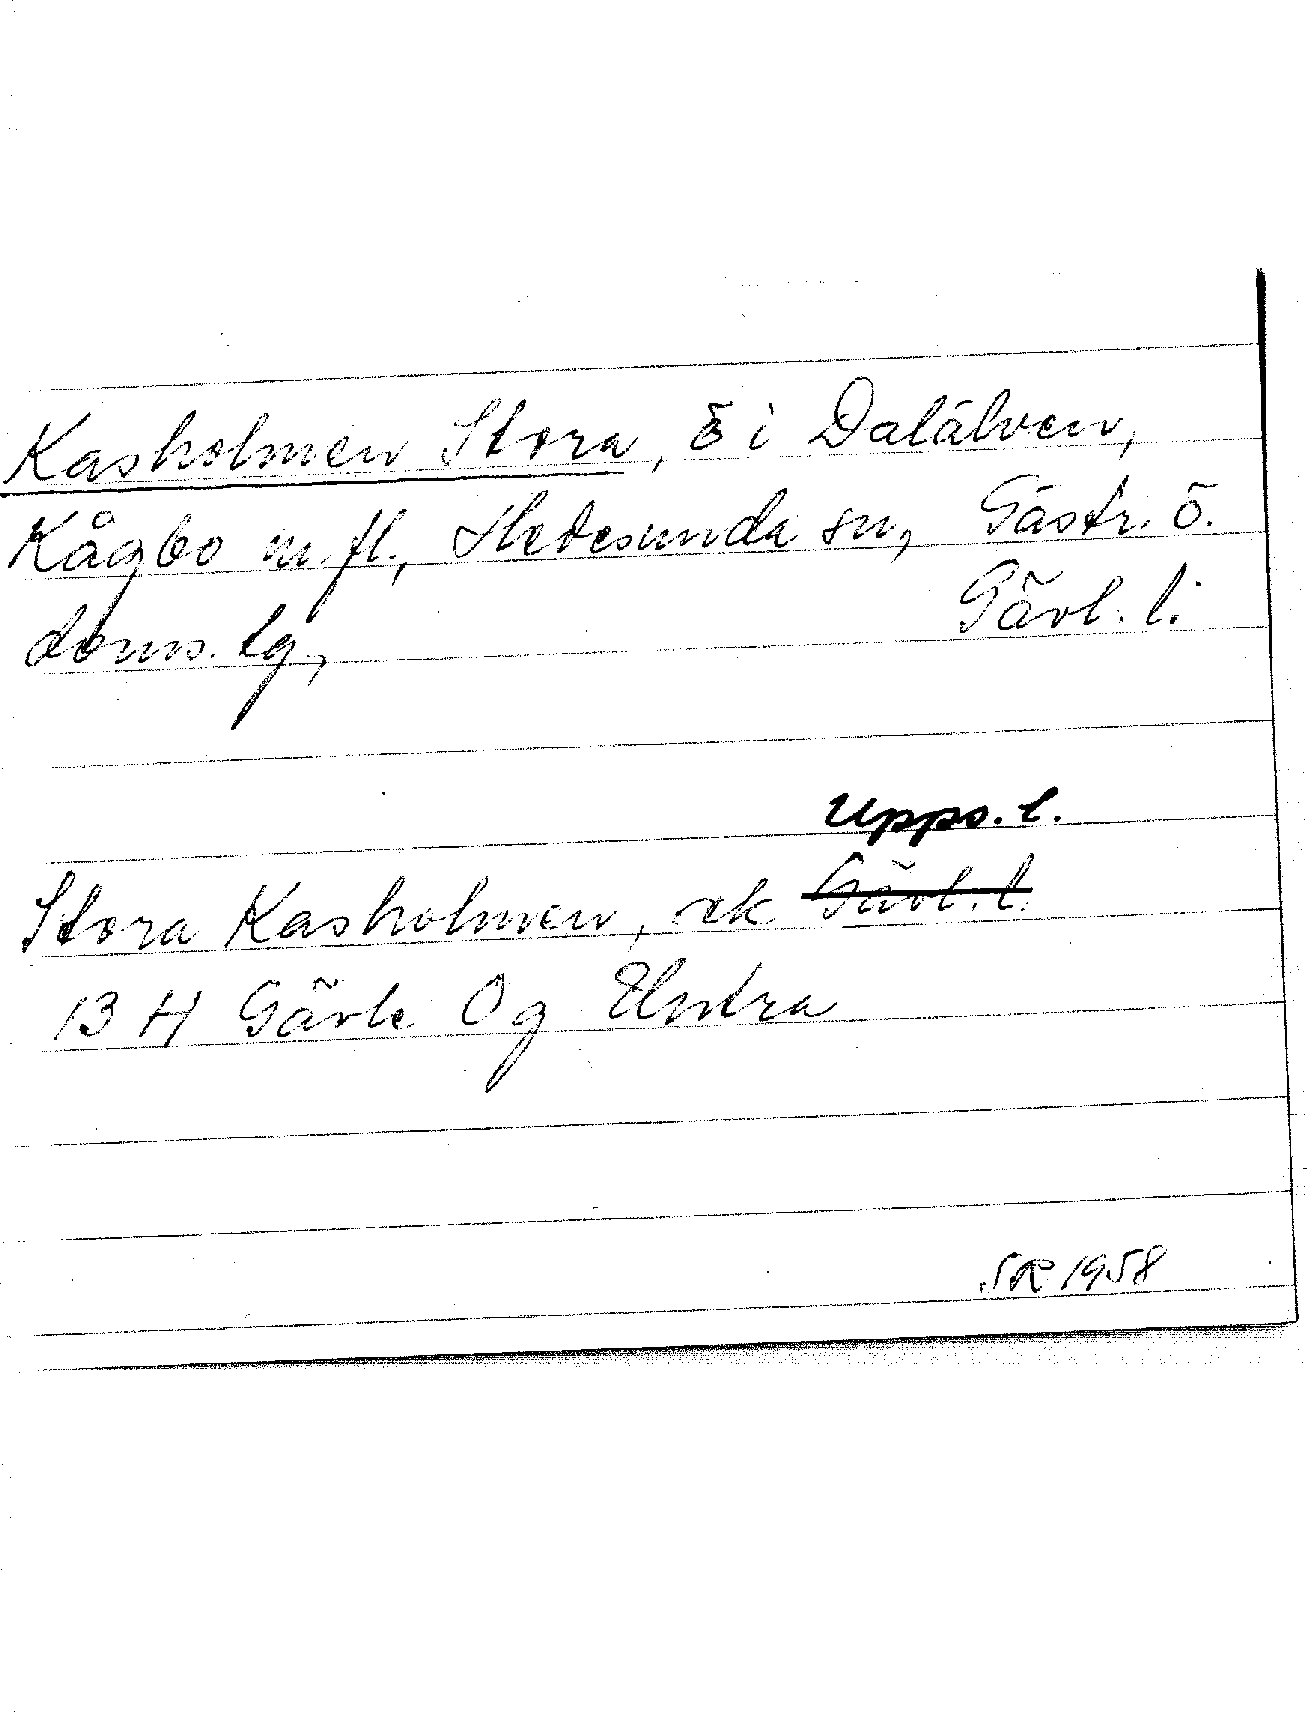 Kasholmen Stora, ö i Dalälven,
Kågbo m.fl., Hedesunda sn, Gästr. ö.
doms. lg, Gävl. l.
Upps. l.
Stora Kasholmen, rek Gävl. l.
13 H Gävle Og Untra
SR 1958